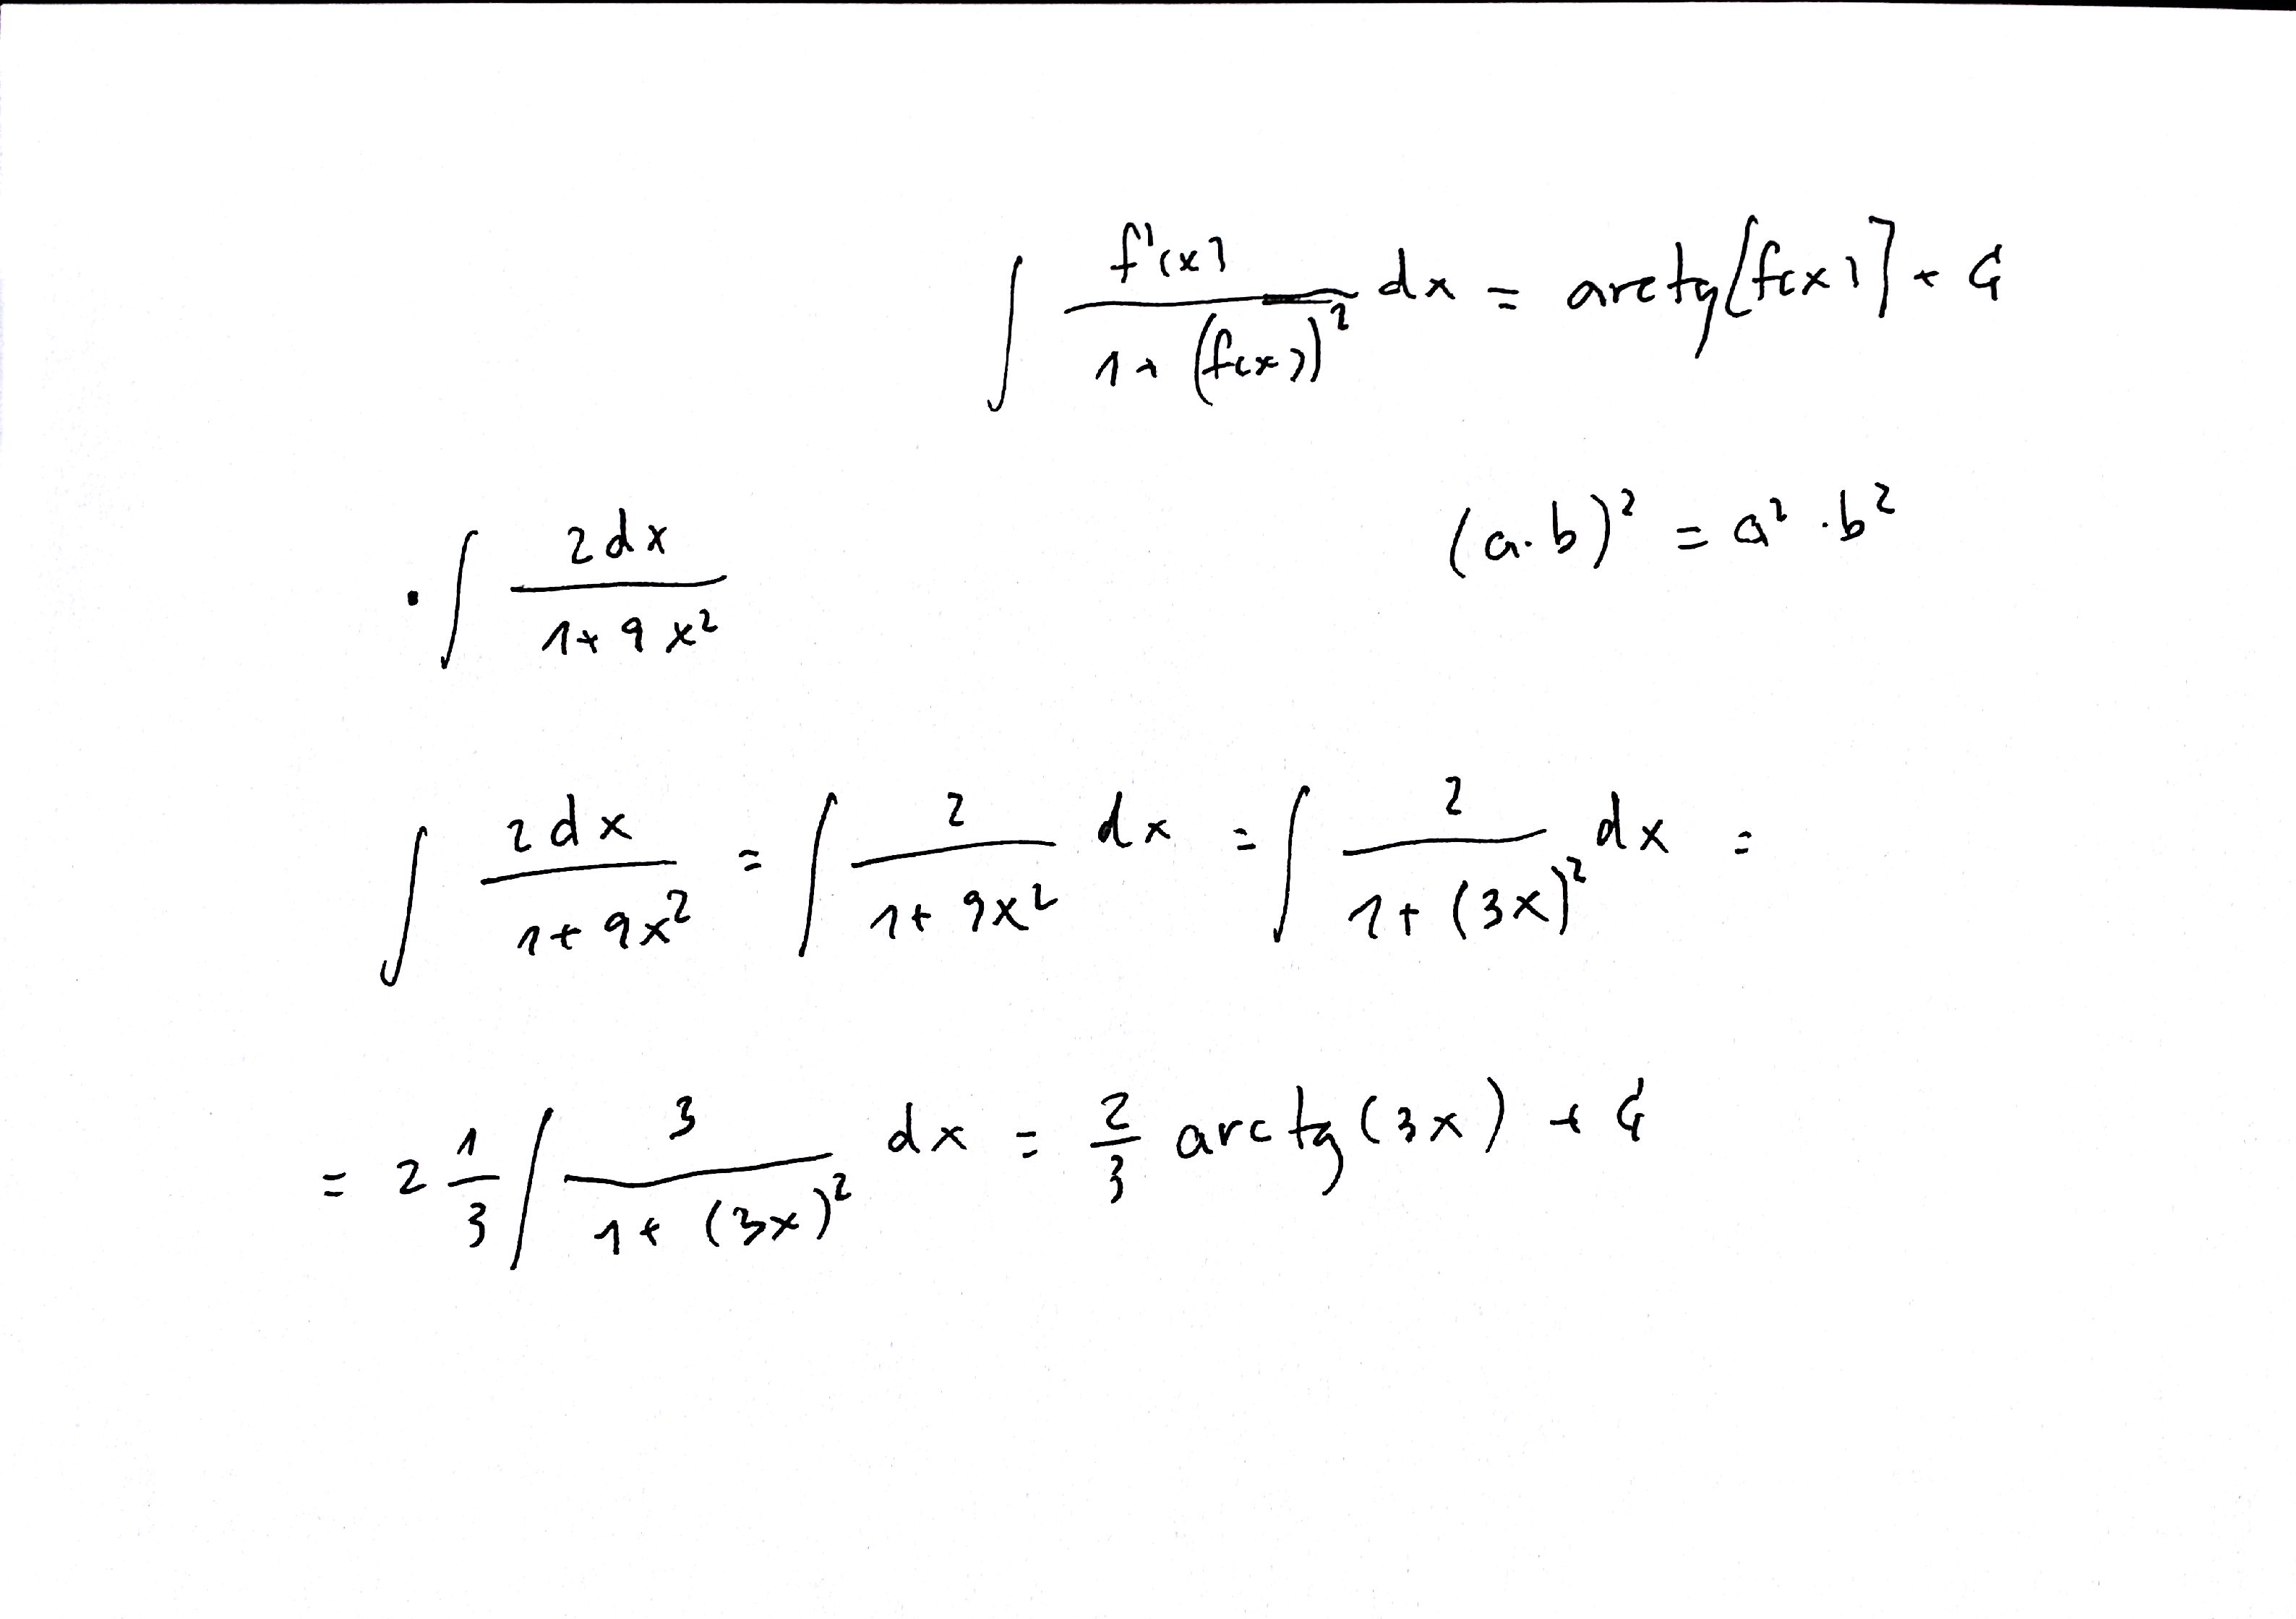 ∫ f'(x) / (1 + (f(x))²) dx = arctg[f(x)] + C
(a·b)² = a²·b²
· ∫ 2dx / (1 + 9x²)
∫ 2dx / (1 + 9x²) = ∫ 2 / (1 + 9x²) dx = ∫ 2 / (1 + (3x)²) dx =
= 2 1/3 ∫ 3 / (1 + (3x)²) dx = 2/3 arctg(3x) + C